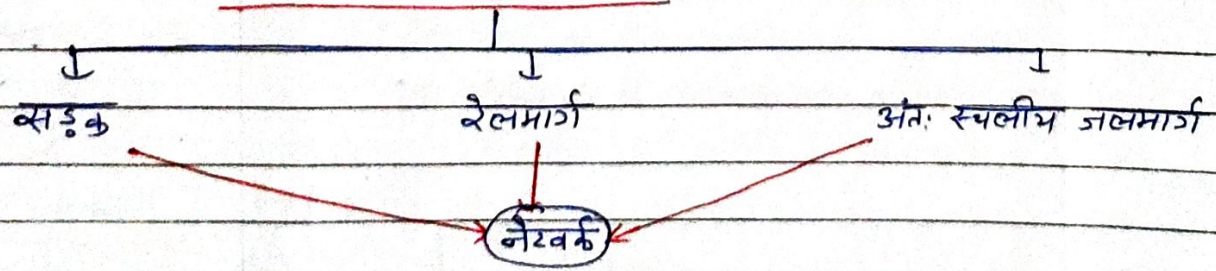 सड़क रेलमार्ग अंतः स्थलीय जलमार्ग
नेटवर्क